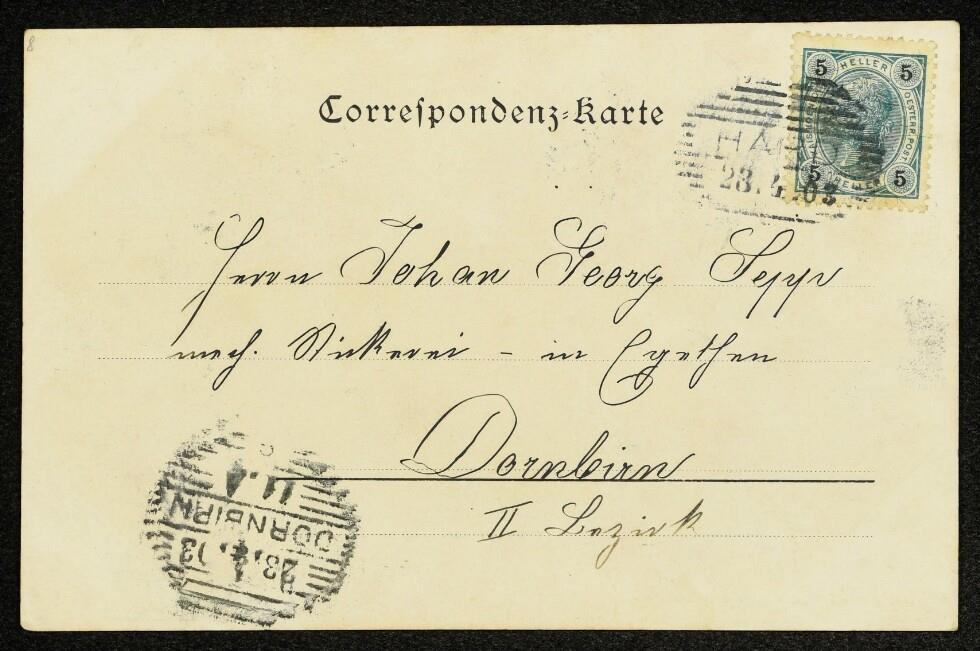 8
Correspondenz-Karte
5 HELLER 5
OESTERR. POST
5 HELLER 5
HA
23.4.03
Herrn Johan Georg Sepp
mech. Stickerei - in
Dornbirn
II Bezirk
11.
DORNBIRN
23.4.03